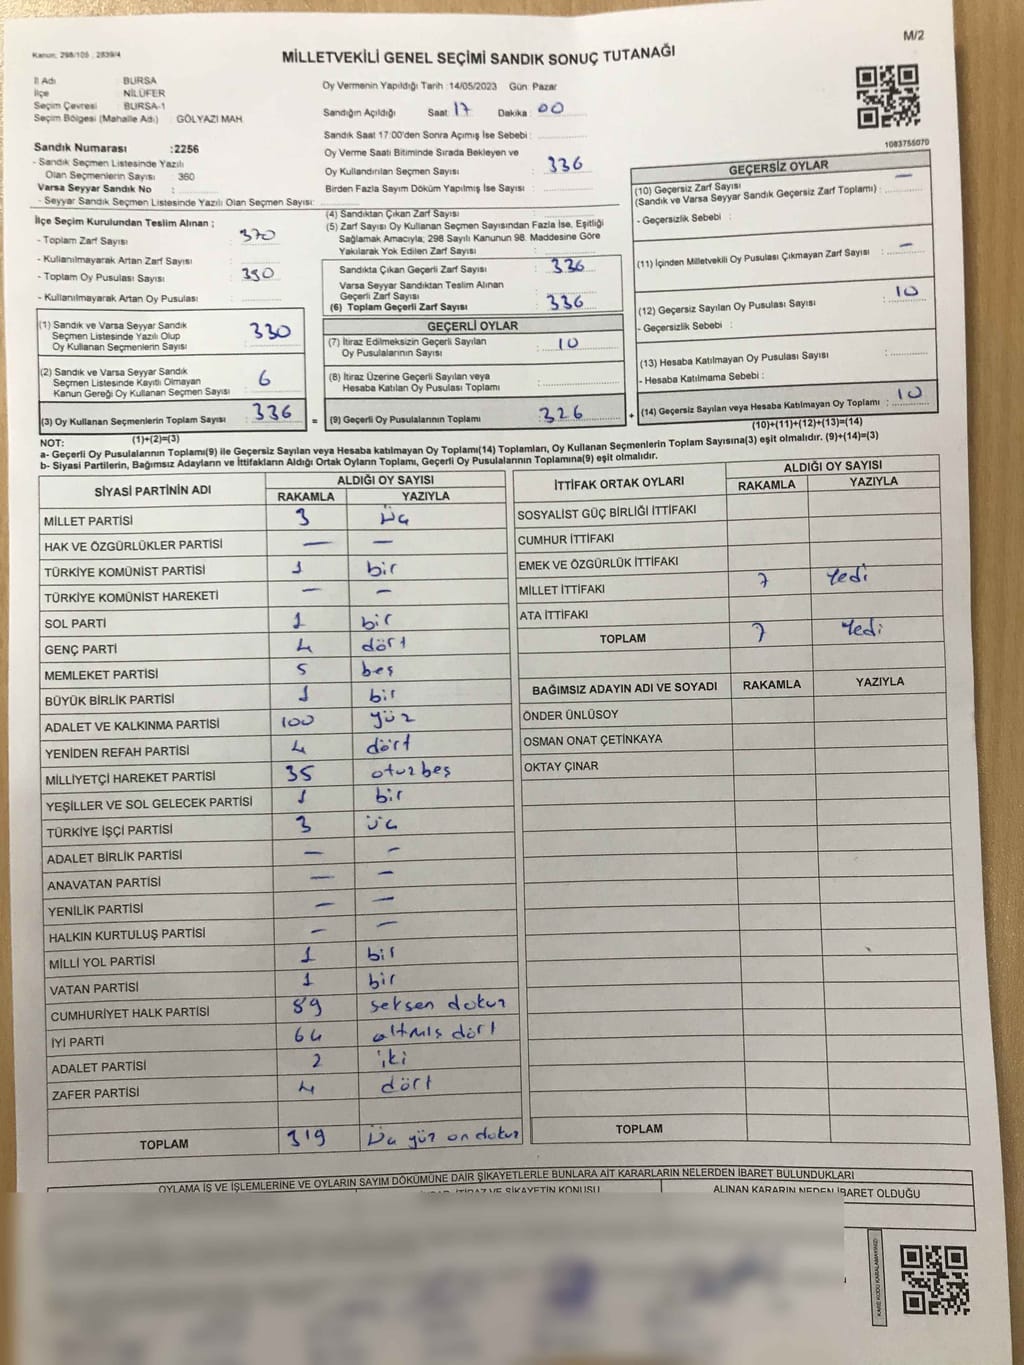 M/2
Kanun: 298/105 , 2839/4
MİLLETVEKİLİ GENEL SEÇİMİ SANDIK SONUÇ TUTANAĞI
İl Adı : BURSA
İlçe : NİLÜFER
Seçim Çevresi : BURSA-1
Seçim Bölgesi (Mahalle Adı) : GÖLYAZI MAH
Sandık Numarası :2256
- Sandık Seçmen Listesinde Yazılı
Olan Seçmenlerin Sayısı : 360
Varsa Seyyar Sandık No :
- Seyyar Sandık Seçmen Listesinde Yazılı Olan Seçmen Sayısı:
Oy Vermenin Yapıldığı Tarih :14/05/2023 Gün: Pazar
Sandığın Açıldığı Saat: 17 Dakika : 00
Sandık Saat 17:00'den Sonra Açımış İse Sebebi :
Oy Verme Saati Bitiminde Sırada Bekleyen ve
Oy Kullandırılan Seçmen Sayısı : 336
Birden Fazla Sayım Döküm Yapılmış İse Sayısı :
1083755070
İlçe Seçim Kurulundan Teslim Alınan ;
- Toplam Zarf Sayısı : 370
- Kullanılmayarak Artan Zarf Sayısı :
- Toplam Oy Pusulası Sayısı : 390
- Kullanılmayarak Artan Oy Pusulası :
(1) Sandık ve Varsa Seyyar Sandık
Seçmen Listesinde Yazılı Olup
Oy Kullanan Seçmenlerin Sayısı : 330
(2) Sandık ve Varsa Seyyar Sandık
Seçmen Listesinde Kayıtlı Olmayan
Kanun Gereği Oy Kullanan Seçmen Sayısı : 6
(3) Oy Kullanan Seçmenlerin Toplam Sayısı : 336 =
(1)+(2)=(3)
(4) Sandıktan Çıkan Zarf Sayısı :
(5) Zarf Sayısı Oy Kullanan Seçmen Sayısından Fazla İse, Eşitliği
Sağlamak Amacıyla; 298 Sayılı Kanunun 98. Maddesine Göre
Yakılarak Yok Edilen Zarf Sayısı :
Sandıkta Çıkan Geçerli Zarf Sayısı : 336
Varsa Seyyar Sandıktan Teslim Alınan
Geçerli Zarf Sayısı :
(6) Toplam Geçerli Zarf Sayısı : 336
GEÇERLİ OYLAR
(7) İtiraz Edilmeksizin Geçerli Sayılan
Oy Pusulalarının Sayısı : 10
(8) İtiraz Üzerine Geçerli Sayılan veya
Hesaba Katılan Oy Pusulası Toplamı :
(9) Geçerli Oy Pusulalarının Toplamı : 326 +
GEÇERSİZ OYLAR
(10) Geçersiz Zarf Sayısı : —
(Sandık ve Varsa Seyyar Sandık Geçersiz Zarf Toplamı) :
- Geçersizlik Sebebi :
(11) İçinden Milletvekili Oy Pusulası Çıkmayan Zarf Sayısı : —
(12) Geçersiz Sayılan Oy Pusulası Sayısı : 10
- Geçersizlik Sebebi :
(13) Hesaba Katılmayan Oy Pusulası Sayısı :
- Hesaba Katılmama Sebebi :
(14) Geçersiz Sayılan veya Hesaba Katılmayan Oy Toplamı : 10
(10)+(11)+(12)+(13)=(14)
NOT:
a- Geçerli Oy Pusulalarının Toplamı(9) ile Geçersiz Sayılan veya Hesaba katılmayan Oy Toplamı(14) Toplamları, Oy Kullanan Seçmenlerin Toplam Sayısına(3) eşit olmalıdır. (9)+(14)=(3)
b- Siyasi Partilerin, Bağımsız Adayların ve İttifakların Aldığı Ortak Oyların Toplamı, Geçerli Oy Pusulalarının Toplamına(9) eşit olmalıdır.
SİYASİ PARTİNİN ADI ALDIĞI OY SAYISI
RAKAMLA YAZIYLA
MİLLET PARTİSİ 3 Üç
HAK VE ÖZGÜRLÜKLER PARTİSİ — —
TÜRKİYE KOMÜNİST PARTİSİ 1 bir
TÜRKİYE KOMÜNİST HAREKETİ — —
SOL PARTİ 1 bir
GENÇ PARTİ 4 dört
MEMLEKET PARTİSİ 5 beş
BÜYÜK BİRLİK PARTİSİ 1 bir
ADALET VE KALKINMA PARTİSİ 100 yüz
YENİDEN REFAH PARTİSİ 4 dört
MİLLİYETÇİ HAREKET PARTİSİ 35 otuzbeş
YEŞİLLER VE SOL GELECEK PARTİSİ 1 bir
TÜRKİYE İŞÇİ PARTİSİ 3 üç
ADALET BİRLİK PARTİSİ — —
ANAVATAN PARTİSİ — —
YENİLİK PARTİSİ — —
HALKIN KURTULUŞ PARTİSİ — —
MİLLİ YOL PARTİSİ 1 bir
VATAN PARTİSİ 1 bir
CUMHURİYET HALK PARTİSİ 89 seksen dokuz
İYİ PARTİ 64 altmış dört
ADALET PARTİSİ 2 iki
ZAFER PARTİSİ 4 dört
TOPLAM 319 Üç yüz on dokuz
İTTİFAK ORTAK OYLARI ALDIĞI OY SAYISI
RAKAMLA YAZIYLA
SOSYALİST GÜÇ BİRLİĞİ İTTİFAKI
CUMHUR İTTİFAKI
EMEK VE ÖZGÜRLÜK İTTİFAKI
MİLLET İTTİFAKI 7 Yedi
ATA İTTİFAKI
TOPLAM 7 Yedi
BAĞIMSIZ ADAYIN ADI VE SOYADI RAKAMLA YAZIYLA
ÖNDER ÜNLÜSOY
OSMAN ONAT ÇETİNKAYA
OKTAY ÇINAR
TOPLAM
OYLAMA İŞ VE İŞLEMLERİNE VE OYLARIN SAYIM DÖKÜMÜNE DAİR ŞİKAYETLERLE BUNLARA AİT KARARLARIN NELERDEN İBARET BULUNDUKLARI
İTİRAZ VE ŞİKAYETİN KONUSU ALINAN KARARIN NEDEN İBARET OLDUĞU
KARE KODU KARALAMAYINIZ!